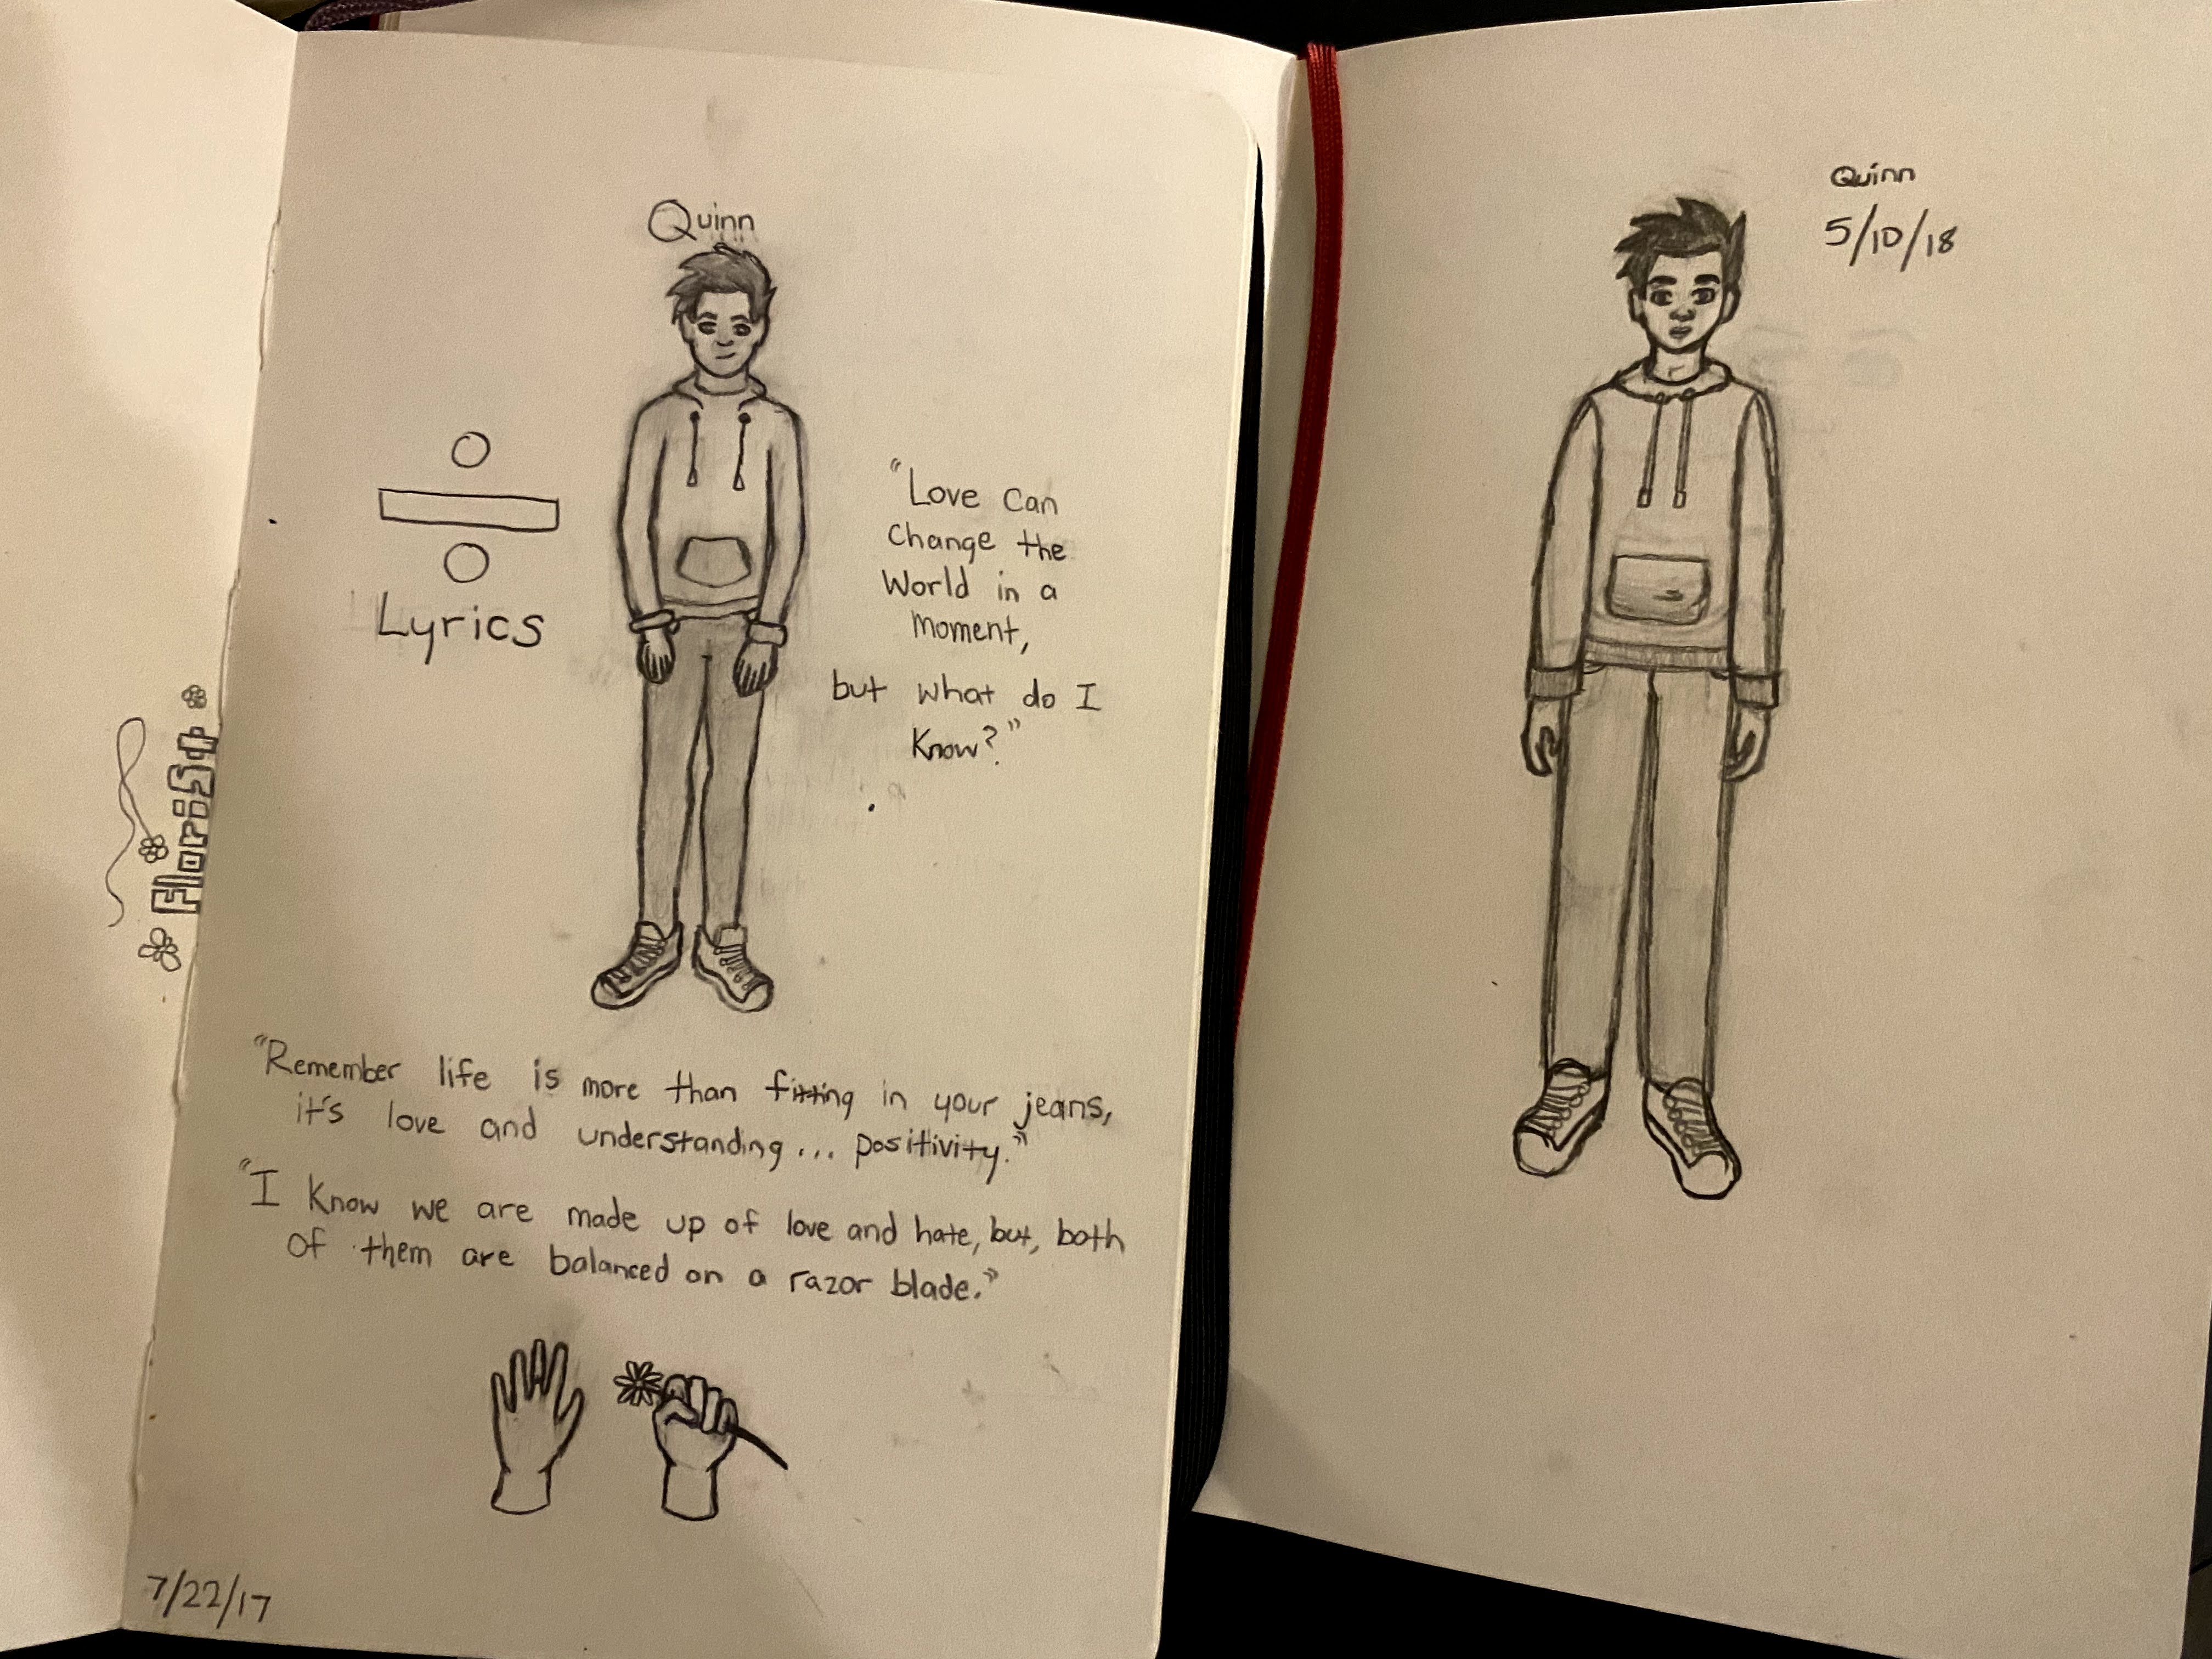 Quinn
Lyrics
"Love can
change the
World in a
moment,
but what do I
Know?"
Florist
"Remember life is more than fitting in your jeans,
it's love and understanding... positivity."
"I know we are made up of love and hate, but, both
of them are balanced on a razor blade."
7/22/17
Quinn
5/10/18